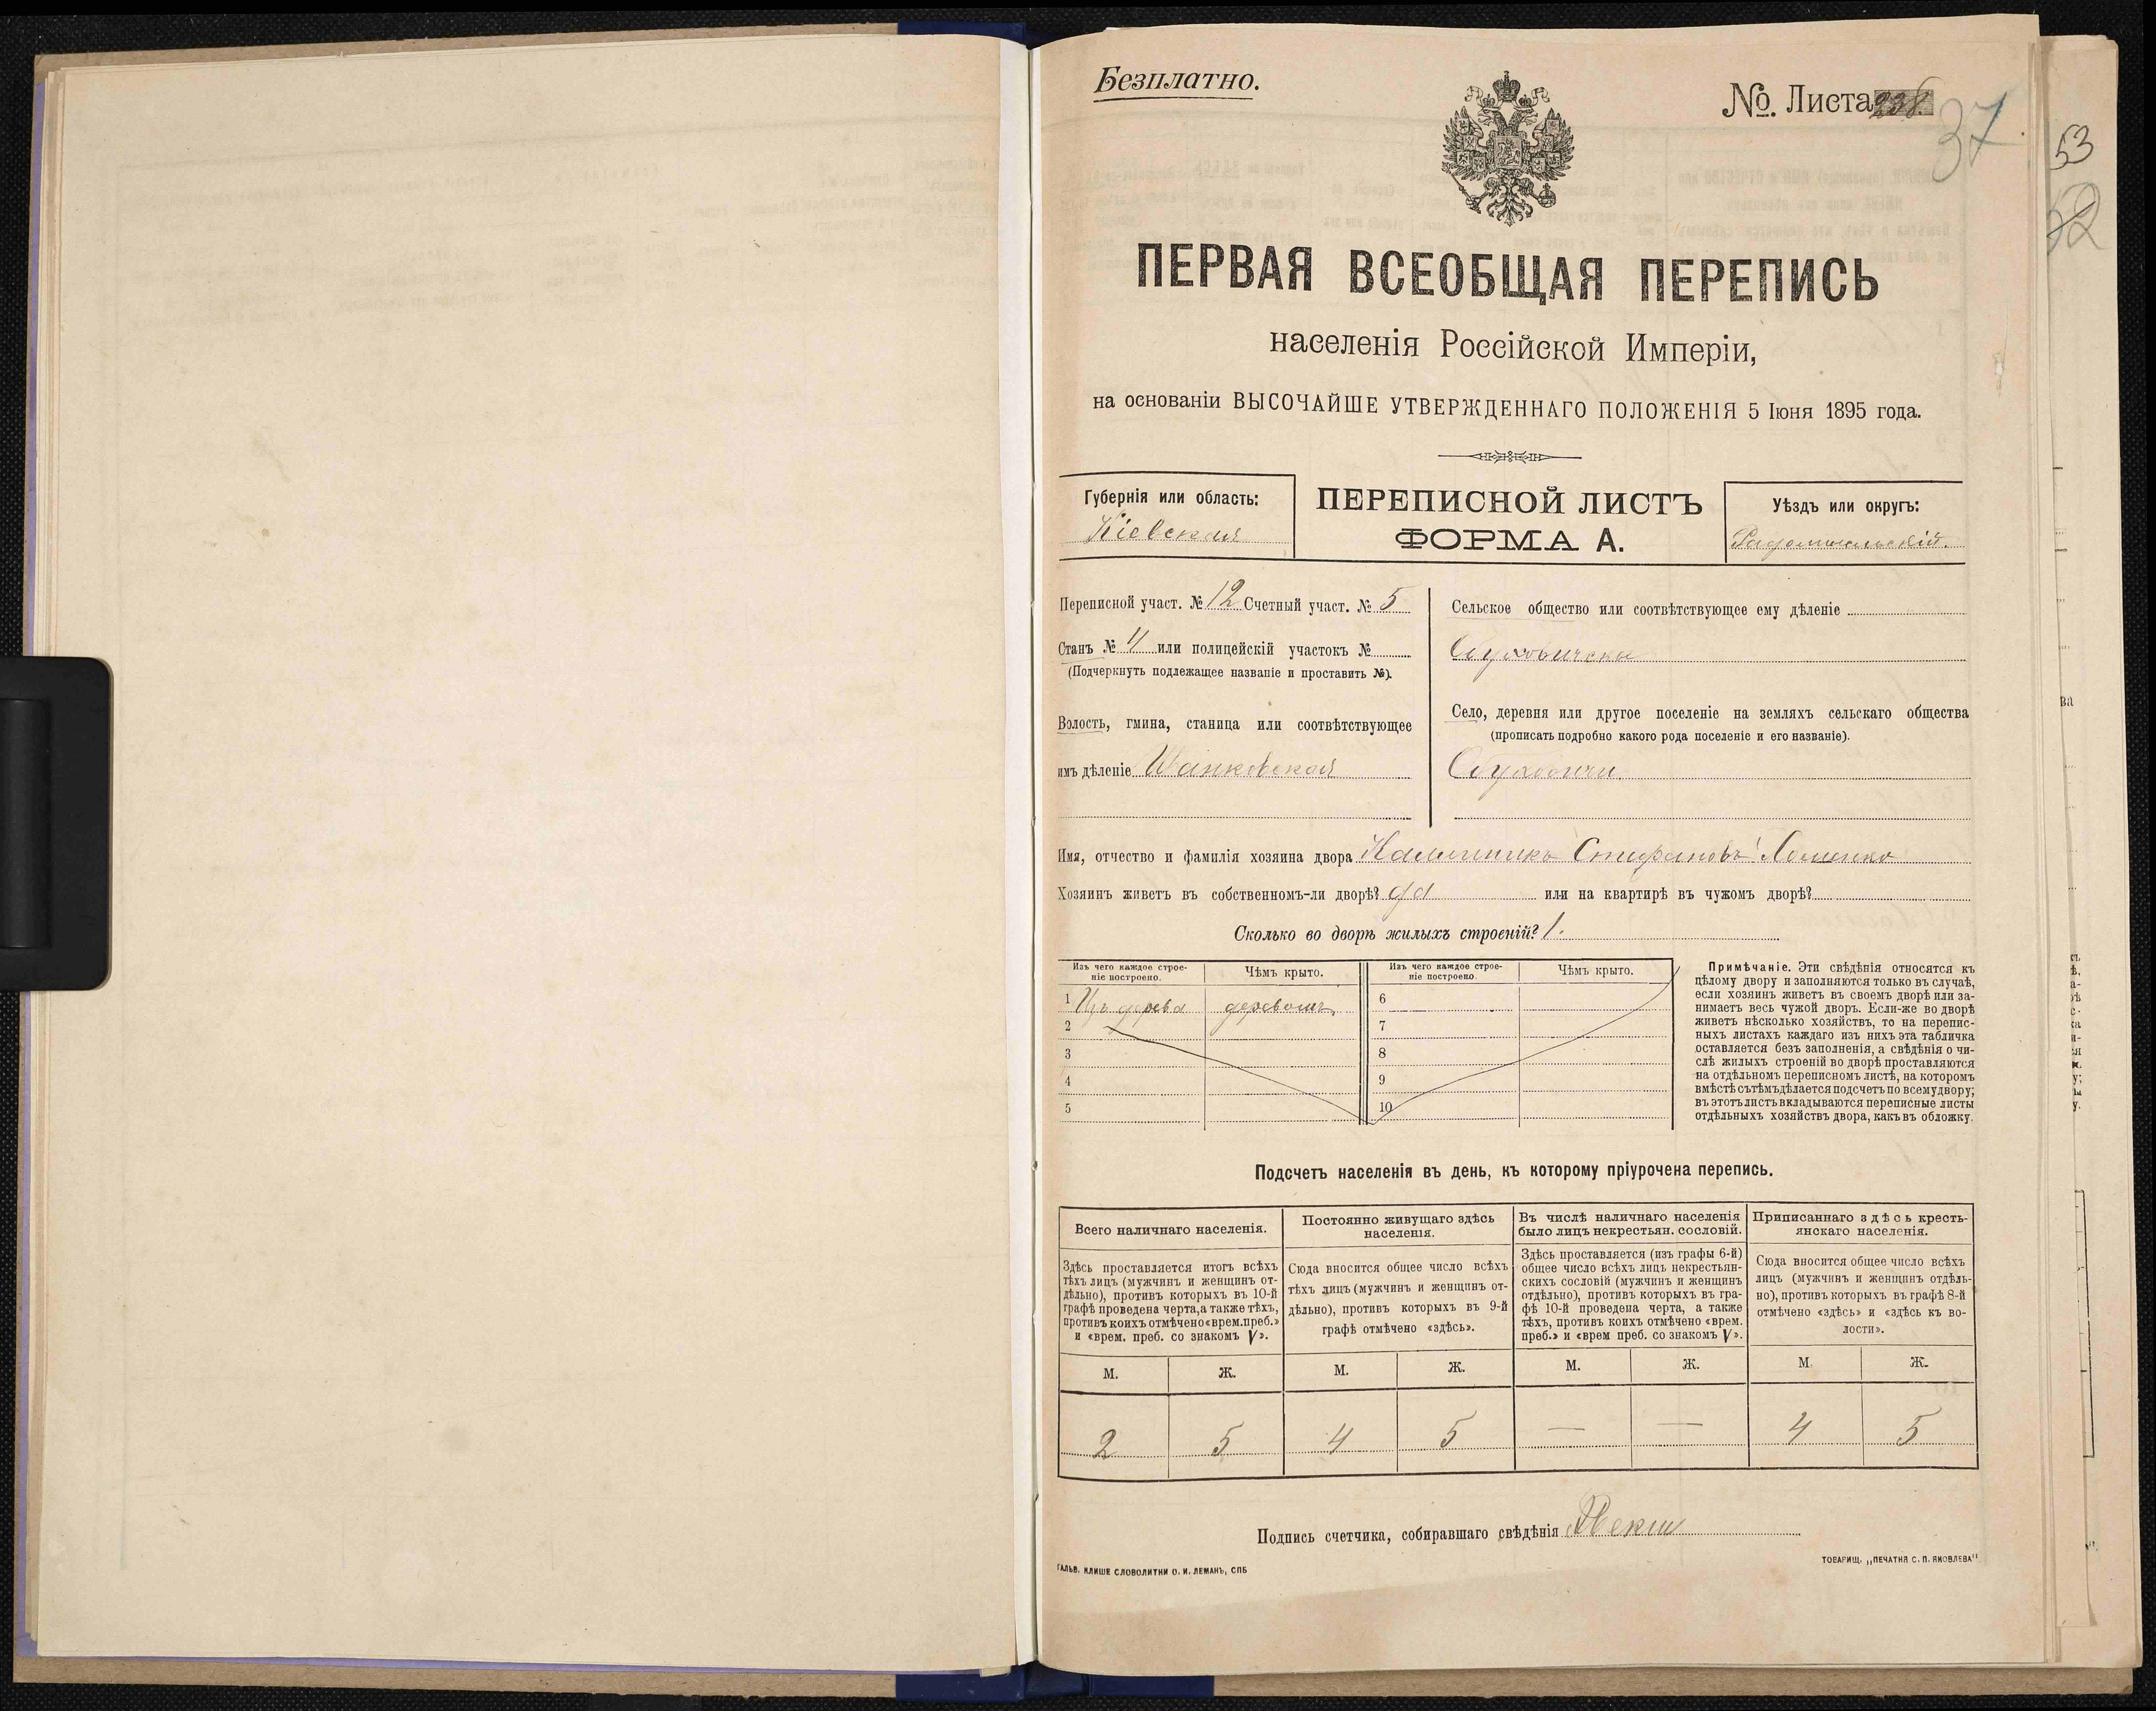 Безплатно.
№ Листа 238.
37
53
52
ПЕРВАЯ ВСЕОБЩАЯ ПЕРЕПИСЬ
населенія Россійской Имперіи,
на основаніи ВЫСОЧАЙШЕ УТВЕРЖДЕННАГО ПОЛОЖЕНІЯ 5 Іюня 1895 года.
Губернія или область:
Кіевская
ПЕРЕПИСНОЙ ЛИСТЪ
ФОРМА А.
Уѣздъ или округъ:
Радомысльскій.
Переписной участ. № 12 Счетный участ. № 5
Станъ № 4 или полицейскій участокъ №
(Подчеркнуть подлежащее названіе и проставить №).
Волость, гмина, станица или соотвѣтствующее
имъ дѣленіе
Сельское общество или соотвѣтствующее ему дѣленіе
Село, деревня или другое поселеніе на земляхъ сельскаго общества
(прописать подробно какого рода поселеніе и его названіе).
Имя, отчество и фамилія хозяина двора Калинникъ Стифановъ
Хозяинъ живетъ въ собственномъ-ли дворѣ? да или на квартирѣ въ чужомъ дворѣ?
Сколько во дворѣ жилыхъ строеній? 1.
Изъ чего каждое строе-
ніе построено.
Чѣмъ крыто.
Изъ чего каждое строе-
ніе построено.
Чѣмъ крыто.
1 Изъ дерева деревомъ
2
3
4
5
6
7
8
9
10
Примѣчаніе. Эти свѣдѣнія относятся къ
цѣлому двору и заполняются только въ случаѣ,
если хозяинъ живетъ въ своемъ дворѣ или за-
нимаетъ весь чужой дворъ. Если-же во дворѣ
живетъ нѣсколько хозяйствъ, то на перепис-
ныхъ листахъ каждаго изъ нихъ эта табличка
оставляется безъ заполненія, а свѣдѣнія о чи-
слѣ жилыхъ строеній во дворѣ проставляются
на отдѣльномъ переписномъ листѣ, на которомъ
вмѣстѣ съ тѣмъ дѣлается подсчетъ по всему двору;
въ этотъ листъ вкладываются переписные листы
отдѣльныхъ хозяйствъ двора, какъ въ обложку.
Подсчетъ населенія въ день, къ которому пріурочена перепись.
Всего наличнаго населенія.
Здѣсь проставляется итогъ всѣхъ
тѣхъ лицъ (мужчинъ и женщинъ от-
дѣльно), противъ которыхъ въ 10-й
графѣ проведена черта, а также тѣхъ,
противъ коихъ отмѣчено «врем. преб.»
и «врем. преб. со знакомъ V».
Постоянно живущаго здѣсь
населенія.
Сюда вносится общее число всѣхъ
тѣхъ лицъ (мужчинъ и женщинъ от-
дѣльно), противъ которыхъ въ 9-й
графѣ отмѣчено «здѣсь».
Въ числѣ наличнаго населенія
было лицъ некрестьян. сословій.
Здѣсь проставляется (изъ графы 6-й)
общее число всѣхъ лицъ некрестьян-
скихъ сословій (мужчинъ и женщинъ
отдѣльно), противъ которыхъ въ гра-
фѣ 10-й проведена черта, а также
тѣхъ, противъ коихъ отмѣчено «врем.
преб.» и «врем преб. со знакомъ V».
Приписаннаго здѣсь кресть-
янскаго населенія.
Сюда вносится общее число всѣхъ
лицъ (мужчинъ и женщинъ отдѣль-
но), противъ которыхъ въ графѣ 8-й
отмѣчено «здѣсь» и «здѣсь къ во-
лости».
М. Ж. М. Ж. М. Ж. М. Ж.
2 5 4 5 — — 4 5
Подпись счетчика, собиравшаго свѣдѣнія
ГАЛЬВ. КЛИШЕ СЛОВОЛИТНИ О. И. ЛЕМАНЪ, СПБ
ТОВАРИЩ. „ПЕЧАТНЯ С. П. ЯКОВЛЕВА"